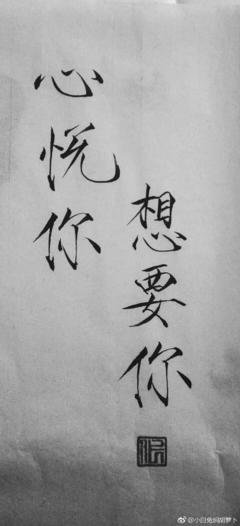 心悦你
想要你
@小白兔妈胡萝卜